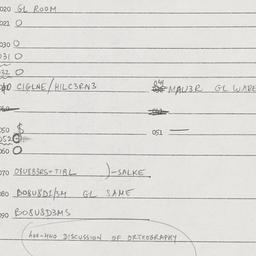 020 GL ROOM
021 O
030 O
031 O
032 O
040 CIGLNE/HILC3RN3 041 MAU3R GL WARE
050 $
051 —
052 O
060 O
070 )-SALKE
080 BO8U8DI/3M GL SAME
090 BO8U8D3MS
DISCUSSION OF ORTHOGRAPHY